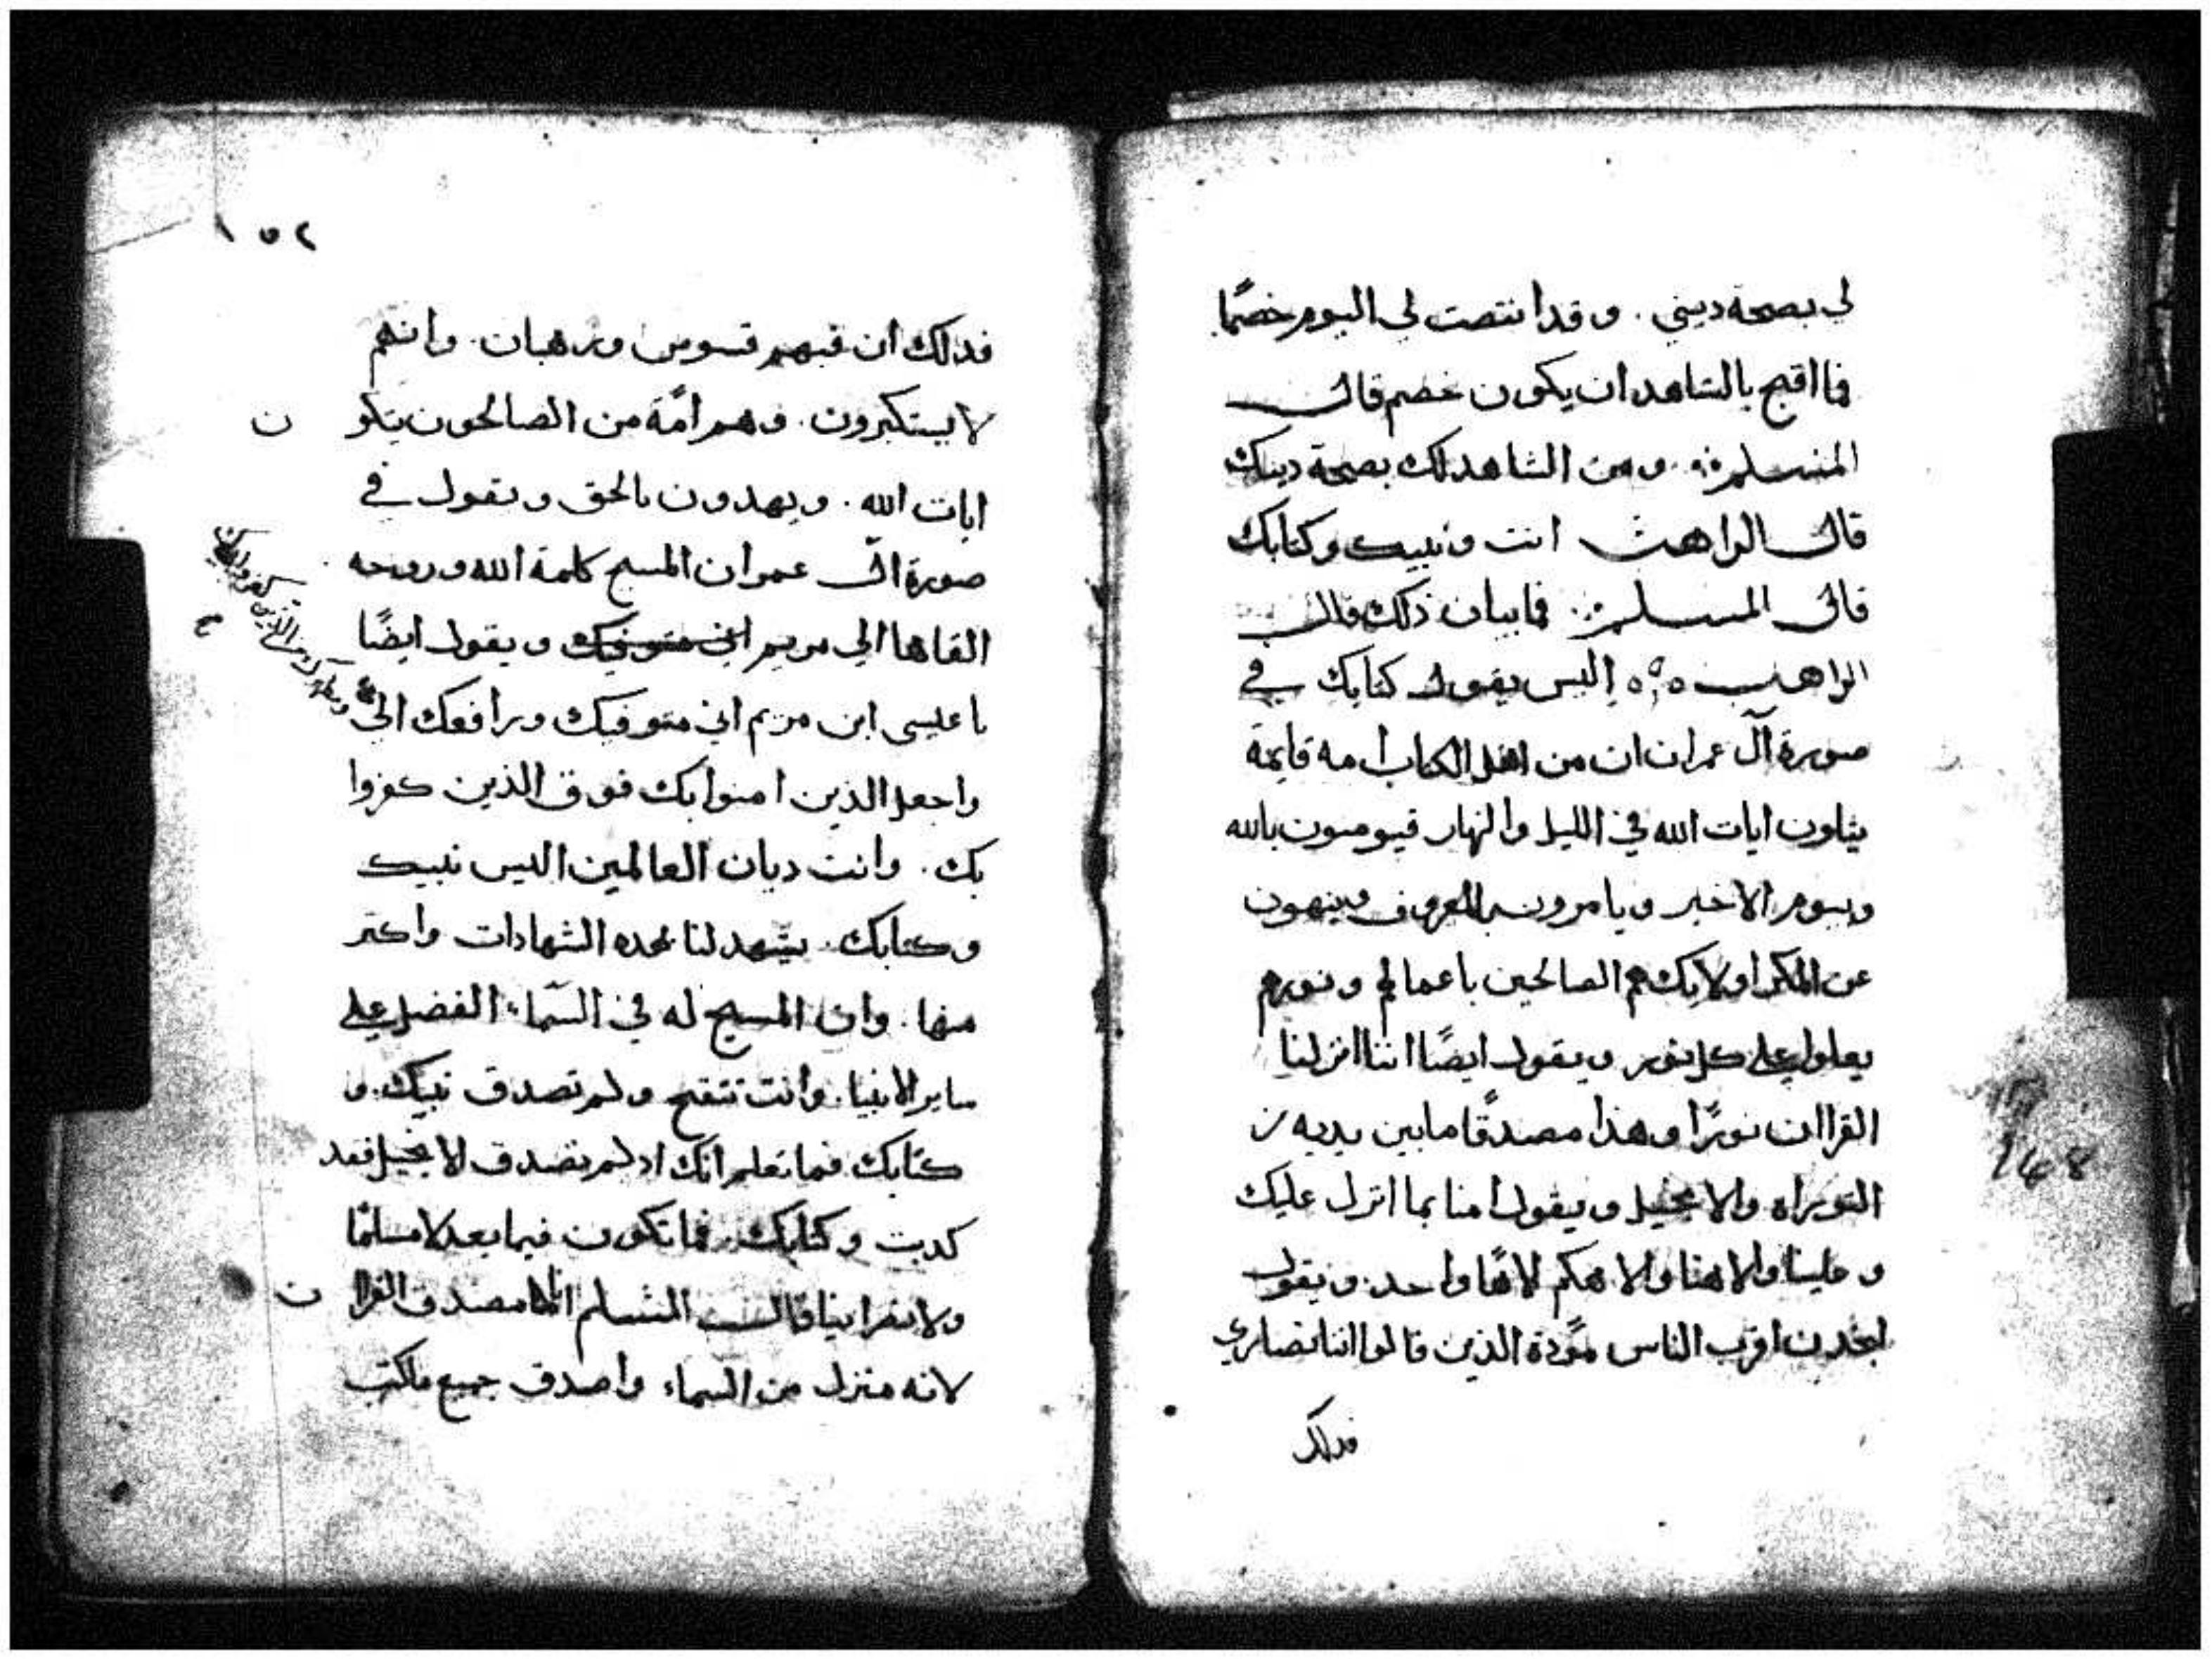 لي بصحة ديني . وقد انتصت لي اليوم خصمًا
فما اقبح بالشاهد ان يكون خصم قال
المسلم ومن الشاهد لك بصحة دينك
قال الراهب انت ونبيك وكتابك
قال المسلم فما بيان ذلك قال
الراهب اليس يقول كتابك في
صورة آل عمران ان من اهل الكتاب امه قايمة
يتلون ايات الله في الليل والنهار فيومنون بالله
وبيوم الاخير ويامرون بالمعروف وينهون
عن المنكر اولايك هم الصالحين باعمالهم ونورهم
يعلوا على كل نور ويقول ايضًا اننا انزلنا
القراان نورًا وهذا مصدقًا ما بين يديه من
التوراه والانجيل ويقول امنا بما انزل عليك
وعلينا والاهنا والاهكم لاهًا واحد. ويقول
لتجدن اقرب الناس مودة الذين قالوا اننا نصاري
فدلك
١٥٢
فدلك ان فيهم قسوس ورهبان. وانهم
لا يستكبرون. وهم امّة من الصالحون يتلو ن
ايات الله . ويهدون بالحق وتقول في
صورة ال عمران المسيح كلمة الله وروحه
القاها الي مريم اني متوفيك ويقول ايضًا
يا عيسى ابن مريم اني متوفيك ورافعك الي
ومطهرك من الذين كفروا
واجعل الذين امنوا بك فوق الذين كفروا
بك . وانت ديان العالمين اليس نبيك
وكتابك. يشهد لنا بهده الشهادات واكتر
منها . وان المسيح له في السماء الفضل على
ساير الانبيا. وانت تتقبح ولم تصدق نبيك. و
كتابك فما تعلم انك اد لم تصدق الانجيل فقد
كدبت وكتابك. فما تكون فيما بعد لا مسلمًا
ولا نصرانيا قال المسلم انا مصدق القرا ن
لانه منزل من السماء واصدق جميع ماكتب